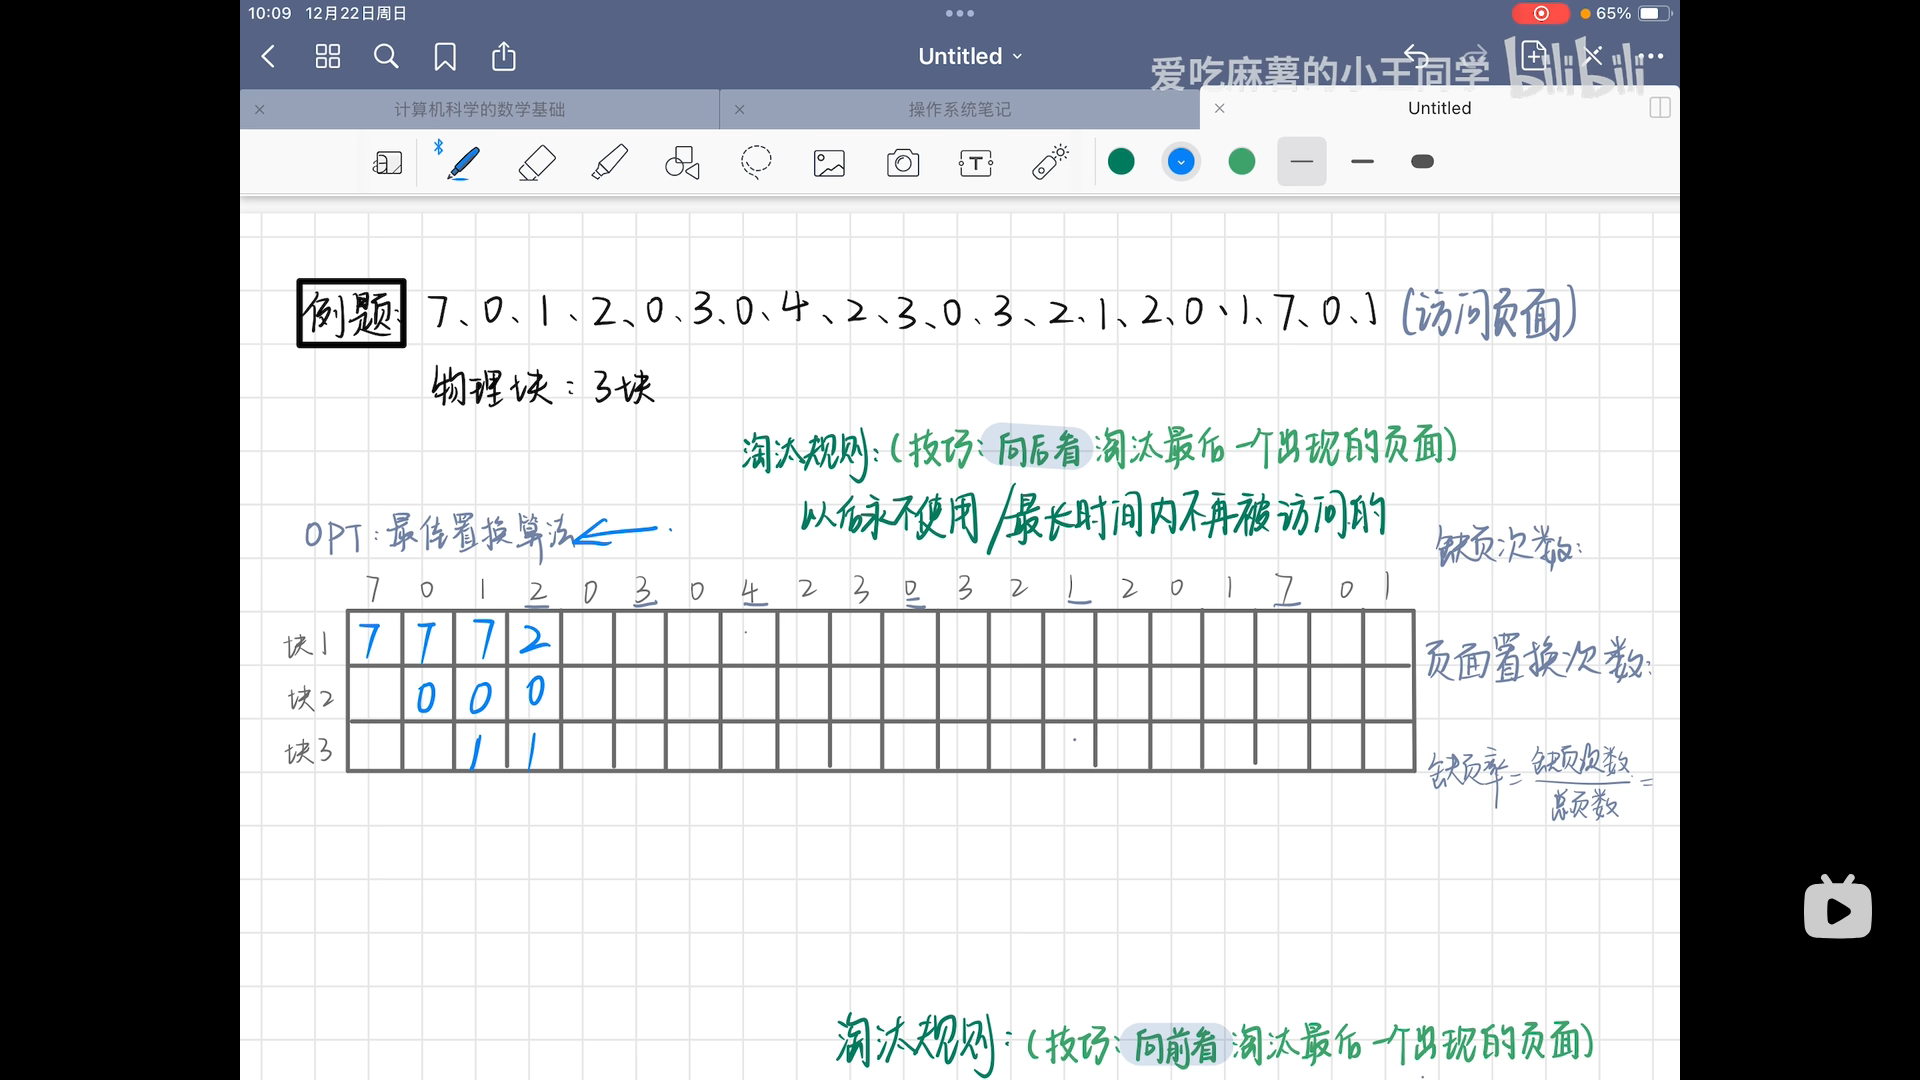 10:09 12月22日周日
65%
Untitled
爱吃麻薯的小王同学 bilibili
计算机科学的数学基础
操作系统笔记
Untitled
例题: 7、0、1、2、0、3、0、4、2、3、0、3、2、1、2、0、1、7、0、1 (访问页面)
物理块:3块
淘汰规则:(技巧:向后看 淘汰最后一个出现的页面)
以后永不使用/最长时间内不再被访问的
OPT:最佳置换算法
缺页次数:
7 0 1 2 0 3 0 4 2 3 0 3 2 1 2 0 1 7 0 1
块1 7 7 7 2
页面置换次数:
块2 0 0 0
块3 1 1
缺页率=缺页次数/总页数=
淘汰规则:(技巧:向前看 淘汰最后一个出现的页面)